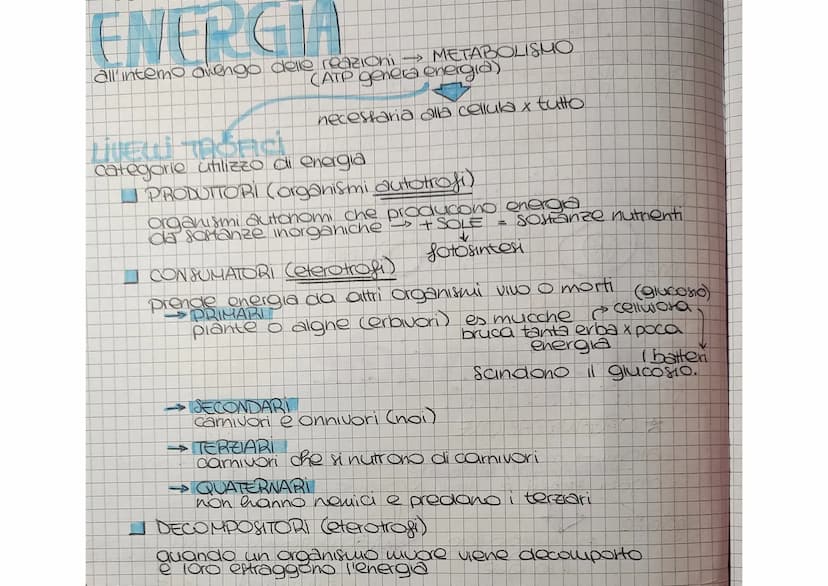 ENERGIA
all'interno avengo delle reazioni → METABOLISMO
(ATP genera energia)
necessaria alla cellula x tutto
LIVELLI TROFICI
categorie utilizzo di energia
PRODUTTORI (organismi autotrofi)
organismi autonomi che producono energia
da sostanze inorganiche → + SOLE = sostanze nutrienti
↓
fotosintesi
CONSUMATORI (eterotrofi)
prende energia da altri organismi vivo o morti (glucosio)
→ PRIMARI
piante o alghe (erbivori) es mucche → cellulosa
bruca tanta erba x poca
energia
I batteri
scindono il glucosio.
→ SECONDARI
carnivori e onnivori (noi)
→ TERZIARI
carnivori che si nutrono di carnivori
→ QUATERNARI
non hanno nemici e predano i terziari
DECOMPOSITORI (eterotrofi)
quando un organismo muore viene decomposto
e loro estraggono l'energia